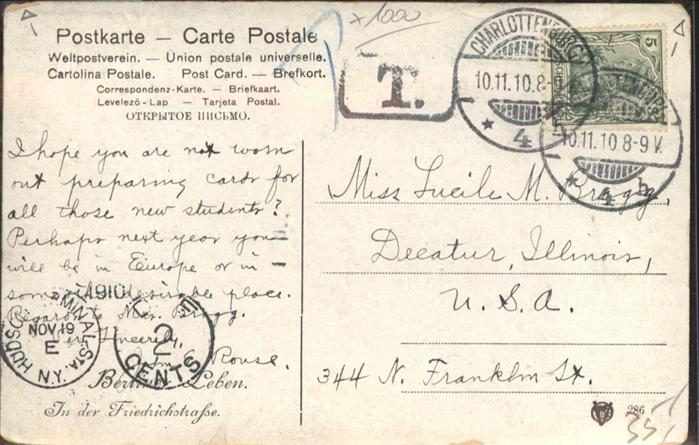 Postkarte — Carte Postale
Weltpostverein. — Union postale universelle.
Cartolina Postale. Post Card. — Brefkort.
Correspondenz-Karte. — Briefkaart.
Levelező-Lap — Tarjeta Postal.
ОТКРЫТОЕ ПИСЬМО.
x 1000
T.
CHARLOTTENBURG
10.11.10.8-
* 4
5
10.11.10 8-9 V.
* 4 b
I hope you are not worn
out preparing cards for
all those new students?
Perhaps next year you
will be in Europe or in
some desirable place.
Regards to Mrs. Bragg.
in Sincerity,
Rouse.
1910
HUDSON TERMINAL STA.
NOV 19
E
N.Y.
2
CENTS
Leben.
In der Friedrichstraße.
Miss Lucile M. Bragg,
Decatur, Illinois,
U.S.A.
344 N. Franklin St.
286
35/-